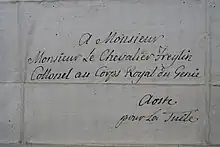 A Monsieur
Monsieur Le Chevalier Freylin
Collonel au Corps Royal du Genie
Aoste
pour La Tuile